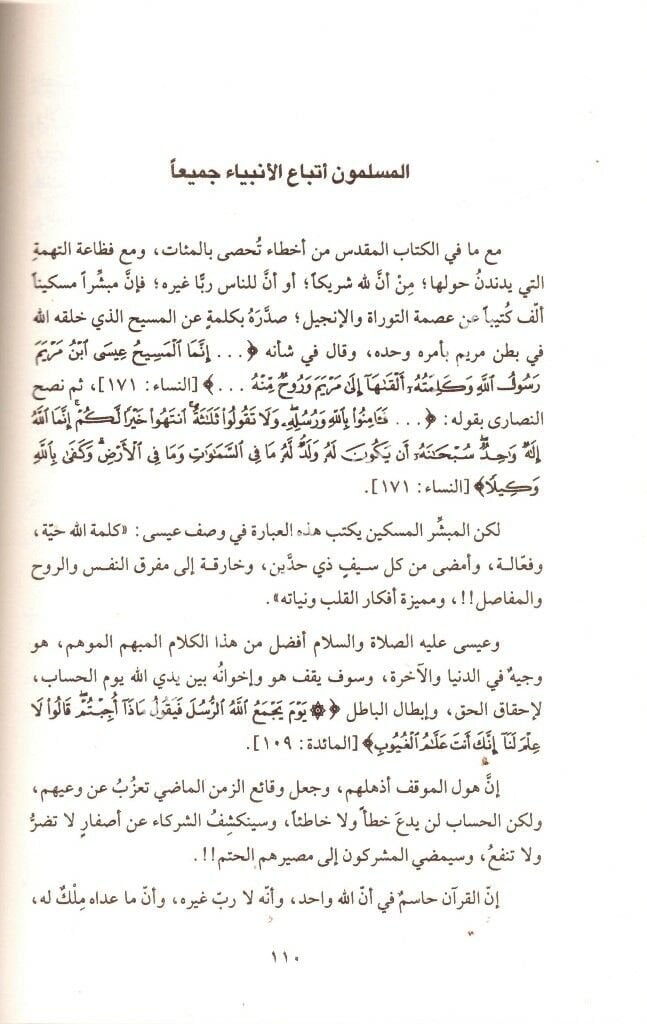 المسلمون أتباع الأنبياء جميعاً
مع ما في الكتاب المقدس من أخطاء تُحصى بالمئات، ومع فظاعة التهمةِ
التي يدندنُ حولها؛ مِنْ أنَّ لله شريكاً؛ أو أنَّ للناس ربًّا غيره؛ فإنَّ مبشِّراً مسكيناً
ألّف كُتيباً عن عصمة التوراة والإنجيل؛ صدَّرَهُ بكلمةٍ عن المسيح الذي خلقه الله
في بطن مريم بأمره وحده، وقال في شأنه ﴿... إِنَّمَا ٱلْمَسِيحُ عِيسَى ٱبْنُ مَرْيَمَ
رَسُولُ ٱللَّهِ وَكَلِمَتُهُۥٓ أَلْقَىٰهَآ إِلَىٰ مَرْيَمَ وَرُوحٌ مِّنْهُ ...﴾ [النساء: ١٧١]، ثم نصح
النصارى بقوله: ﴿... فَـَٔامِنُوا۟ بِٱللَّهِ وَرُسُلِهِۦ وَلَا تَقُولُوا۟ ثَلَـٰثَةٌ ٱنتَهُوا۟ خَيْرًا لَّكُمْ إِنَّمَا ٱللَّهُ
إِلَـٰهٌ وَٰحِدٌ سُبْحَـٰنَهُۥٓ أَن يَكُونَ لَهُۥ وَلَدٌ لَّهُۥ مَا فِى ٱلسَّمَـٰوَٰتِ وَمَا فِى ٱلْأَرْضِ وَكَفَىٰ بِٱللَّهِ
وَكِيلًا﴾ [النساء: ١٧١].
لكن المبشِّر المسكين يكتب هذه العبارة في وصف عيسى: «كلمة الله حيّة،
وفعّالة، وأمضى من كل سيفٍ ذي حدَّين، وخارقة إلى مفرق النفس والروح
والمفاصل!!، ومميزة أفكار القلب ونياته».
وعيسى عليه الصلاة والسلام أفضل من هذا الكلام المبهم الموهم، هو
وجيهٌ في الدنيا والآخرة، وسوف يقف هو وإخوانُه بين يدي الله يوم الحساب،
لإحقاق الحق، وإبطال الباطل ﴿۞ يَوْمَ يَجْمَعُ ٱللَّهُ ٱلرُّسُلَ فَيَقُولُ مَاذَآ أُجِبْتُمْ قَالُوا۟ لَا
عِلْمَ لَنَآ إِنَّكَ أَنتَ عَلَّـٰمُ ٱلْغُيُوبِ﴾ [المائدة: ١٠٩].
إنَّ هول الموقف أذهلهم، وجعل وقائع الزمن الماضي تعزُبُ عن وعيهم،
ولكن الحساب لن يدعَ خطأً ولا خاطئاً، وسينكشِفُ الشركاء عن أصفارٍ لا تضرُّ
ولا تنفعُ، وسيمضي المشركون إلى مصيرهم الحتم!!.
إنّ القرآن حاسمٌ في أنّ الله واحد، وأنّه لا ربّ غيره، وأنّ ما عداه مِلْكٌ له،
١١٠